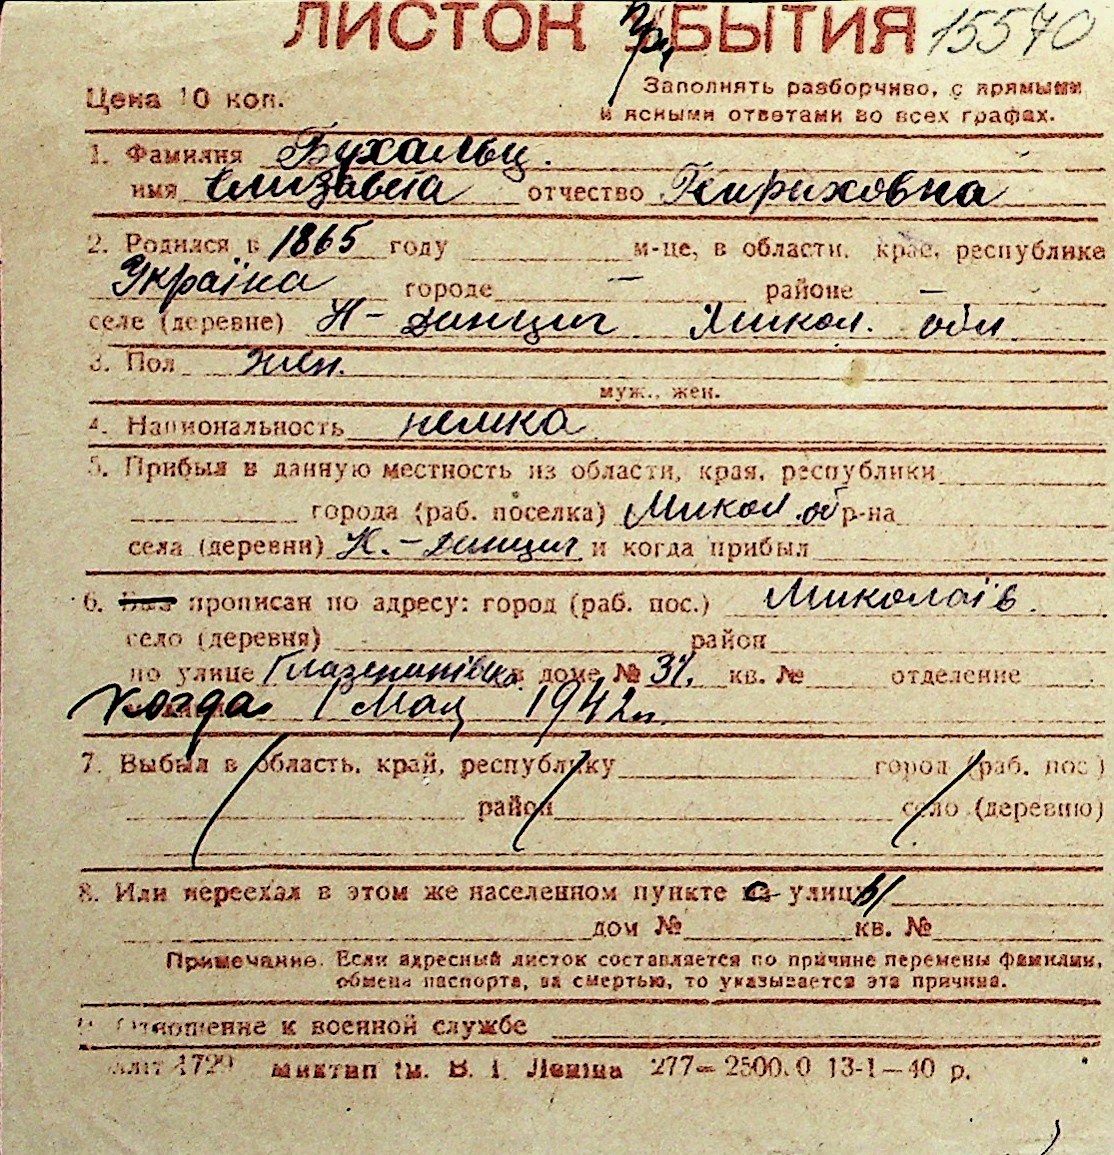 ЛИСТОК При БЫТИЯ 15570
Цена 10 коп.
Заполнять разборчиво, с прямыми
и ясными ответами во всех графах.
1. Фамилия Бухальц.
имя Єлизавета отчество Генриховна
2. Родился в 1865 году м-це, в области, крае, республике
Україна городе — районе —
селе (деревне) Н-Данциг Микол. обл
3. Пол жен.
муж., жен.
4. Национальность немка
5. Прибыл в данную местность из области, края, республики
города (раб. поселка) Микол. об р-на
села (деревни) Н.-Данциг и когда прибыл
6. прописан по адресу: город (раб. пос.) Миколаїв.
село (деревня) район
по улице в доме № 37. кв. № отделение
когда 1 мая 1942 г.
7. Выбыл в область, край, республику город (раб. пос.)
район село (деревню)
8. Или переехал в этом же населенном пункте с улицы
дом № кв. №
Примечание. Если адресный листок составляется по причине перемены фамилии,
обмена паспорта, за смертью, то указывается эта причина.
9. Отношение к военной службе
1729 миктип Ім. В. І. Леніна 277—2500.0 13-1—40 р.